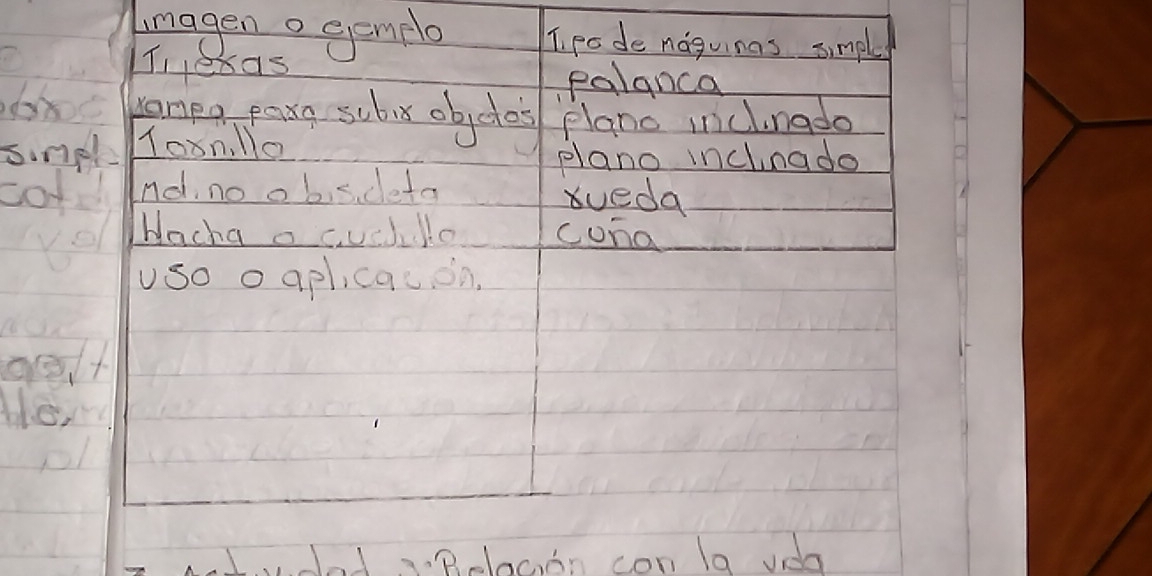 imagen o ejemplo Tipo de máquinas simpl
Tijeras palanca
rampa para subir objetos plano inclinado
Tornillo plano inclinado
simpl
molino o bisicleta rueda
Hacha o cuchillo cuña
uso o aplicación.
Relación con la vida